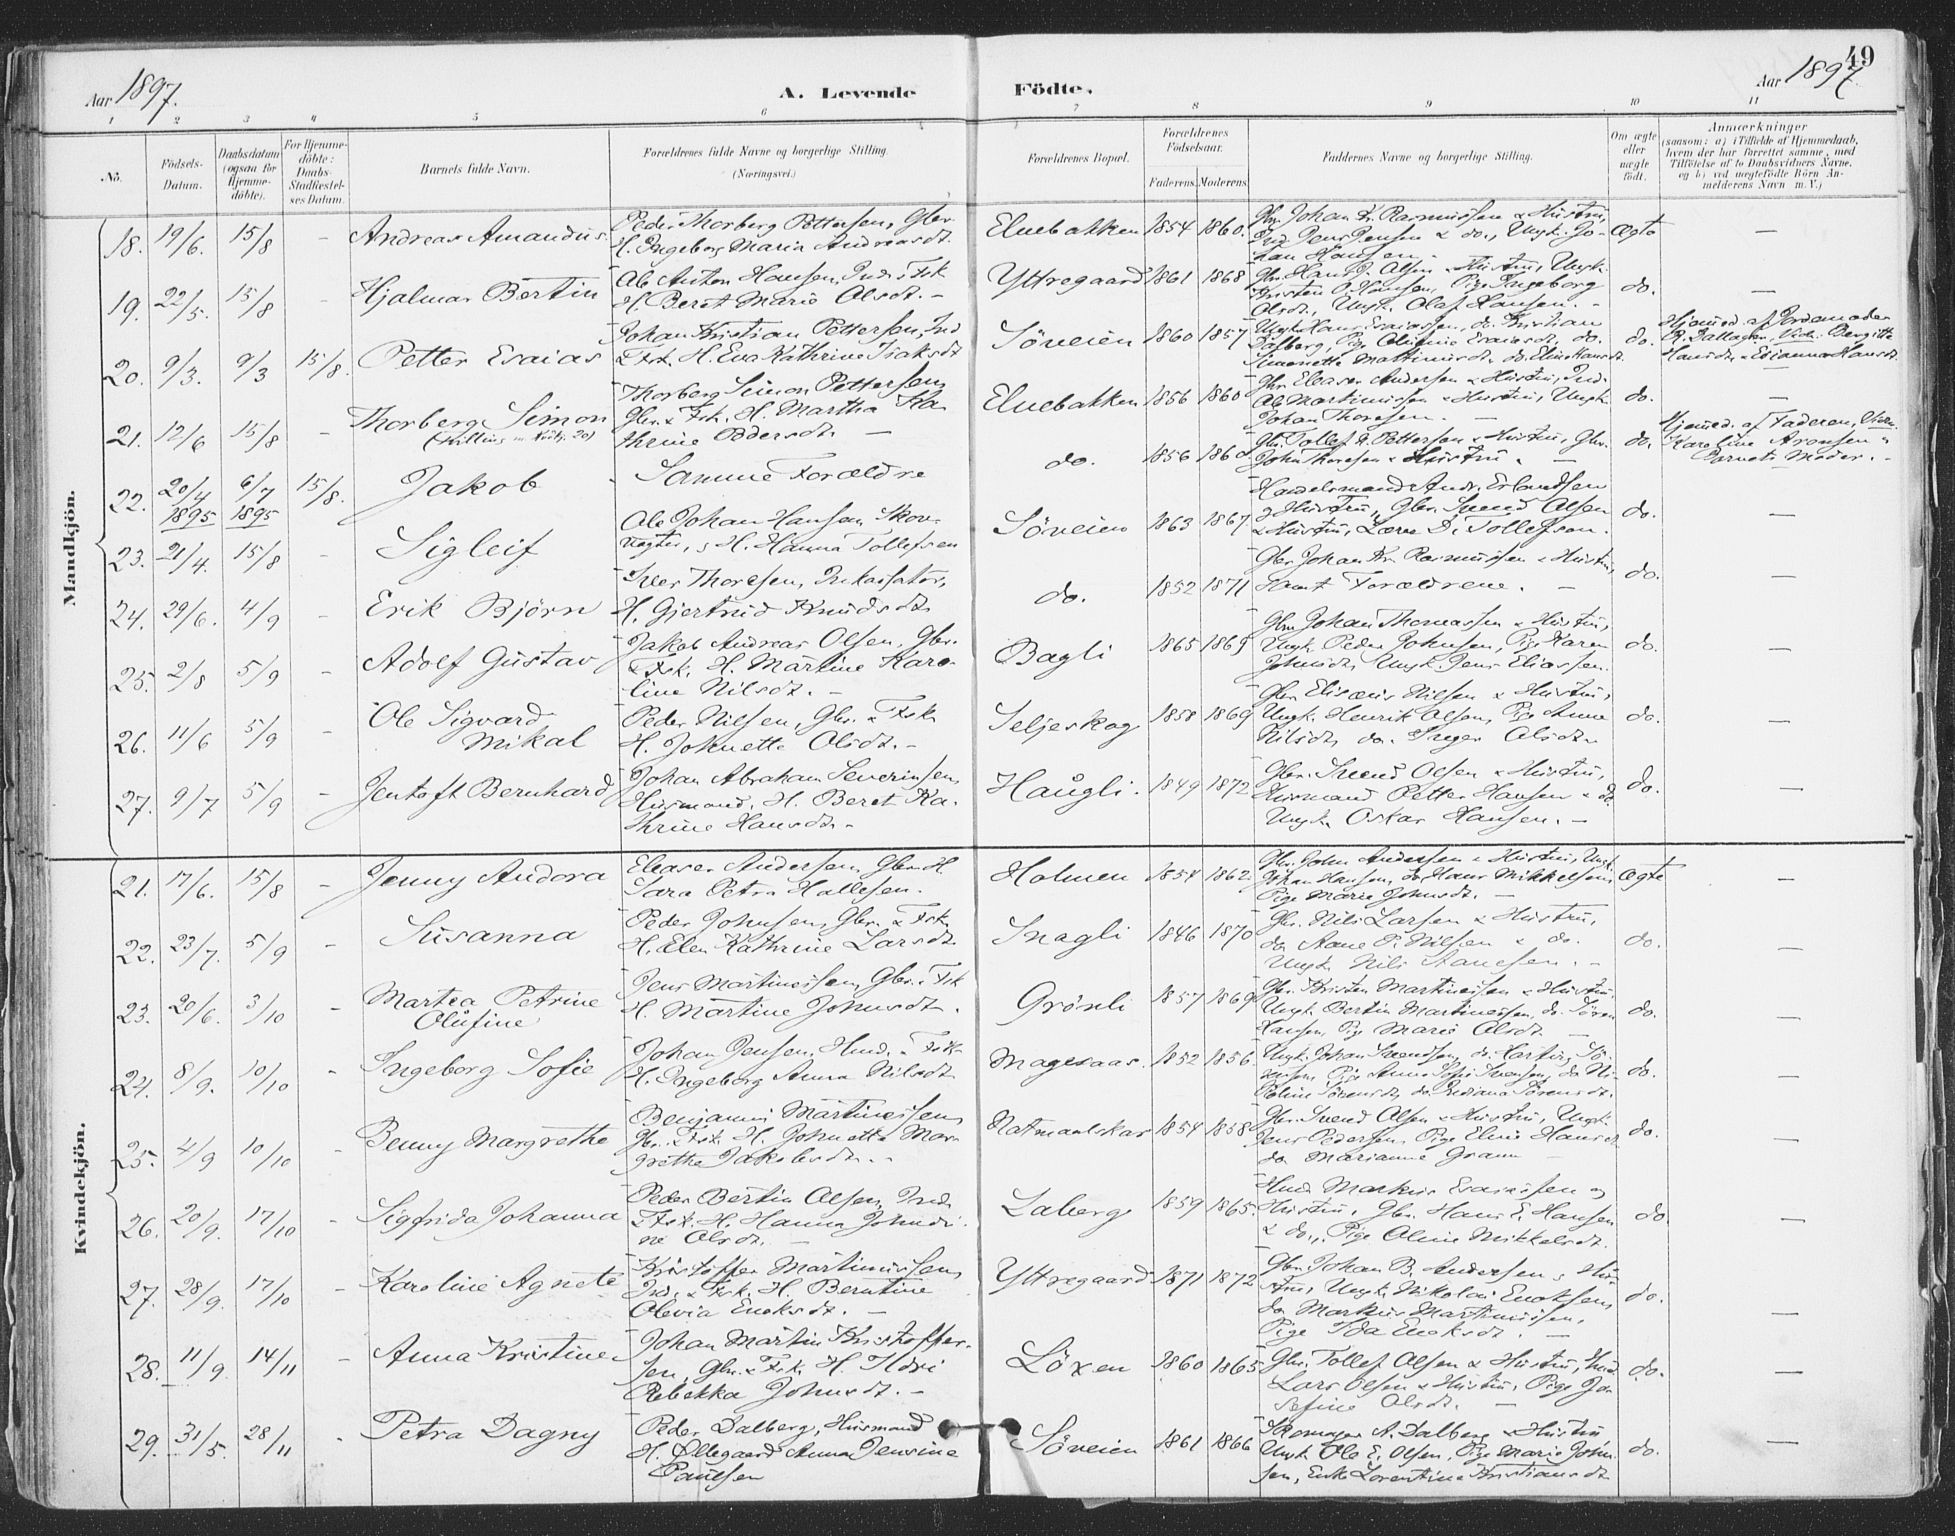 49
Aar 1897.
A. Levende Födte.
Aar 1897.
1 2 3 4 5 6 7 8 9 10 11
No.
Födsels-Datum.
Daabsdatum (ogsaa for Hjemme-döbte).
For Hjemme-döbte: Daabs-Stadfæstel-ses Datum.
Barnets fulde Navn.
Forældrenes fulde Navne og borgerlige Stilling. (Næringsvei.)
Forældrenes Bopæl.
Forældrenes Födselsaar.
Faderens. Moderens.
Faddernes Navne og borgerlige Stilling.
Om ægte eller uægte födt.
Anmærkninger
(saasom: a) i Tilfælde af Hjemmedaab,
hvem der har forrettet samme, med
Tilföielse af to Daabsvidners Navne,
og b) ved uægtefödte Börn An-
melderens Navn m. V.)
Mandkjön.
18. 19/6. 15/8 - Andreas Amandus.
Peder Thorberg Pettersen, Gbr.
H. Ingeborg Maria Andreasdt.
Elvebakken 1854 1860.
Gbr. Johan Kr. Rasmussen & Hustru,
Ind. Jens Jensen & do., Ungk. Jo-
han Hansen.
Ægte -
19. 22/5. 15/8 - Hjalmar Bertin
Ole Anton Hansen, Ind. & Fsk.
H. Beret Marie Olsdt. -
Yttregaard 1861 1868
Gbr. Hans J. Olsen & Hustru, Ungk.
Kristen O. Hansen, Pige Ingeborg
Olsdt., Ungk. Olaf Hansen. -
do. -
20. 9/3. 9/3 15/8. Petter Esaias
Johan Kristian Pettersen, Ind.
& Fsk. H. Eva Kathrine Isaksdt
Söveien 1860 1857
Ungk. Hans Esaiassen, do. Kristian
Dalberg, Pige Olufine Esaiasdt., do.
Simonette Martinusdt. do. Elen Hansdt.
do.
Hjemmed. af Jordemoder
Bergitte
Hansdt. &
21. 12/6 15/8 - Thorberg Simon
(Tvilling m.
Thorberg Simon Pettersen
Gbr. & Fsk. H. Martha Ka-
thrine Pedersdt. -
Elvebakken 1856 1860
Gbr. Eleaser Andersen & Hustru, Ind.
Ole Martinussen & Hustru, Ungk.
Johan Thoresen. -
do. -
22. 20/4 1895 6/7 1895 15/8. Jakob
Samme Forældre
do. 1856 1860
Gbr. Tollef K. Pettersen & Hustru, Gbr.
John Thoresen & Hustru. -
do.
Hjemmed. af Faderen, Vidn.
Karoline Aronsen &
Barnets Moder. -
23. 21/4. 15/8 - Sigleif
Ole Johan Hansen, Skov-
vogter, & H. Hanna Tollefsen
Söveien 1863 1867
Handelsmand Andr. Erlandsen
& Hustru, Gbr. Svend Olsen
& Hustru, Lærer D. Tollefsen.
do. -
24. 29/6. 4/9 - Erik Björn
Iver Thoresen, Inkassator,
H. Gjertrud Knudsdt.
do. 1852 1871
Gbr. Johan Kr. Rasmussen & Hustru,
samt Forældrene. -
do. -
25. 2/8 5/9 - Adolf Gustav
Jakob Andreas Olsen, Gbr.
& Fsk. H. Martine Karo-
line Nilsdt. -
Bagli 1865 1869
Gbr. Johan Thomassen & Hustru,
Ungk. Peder Johnsen, Pige Karen
Johnsdt., Ungk. Jens Eliassen.
do. -
26. 11/6 5/9 - Ole Sigvard
Mikal
Peder Nilsen, Gbr. & Fsk.
H. Johnette Olsdt. -
Seljeskog 1858 1869
Gbr. Elisæus Nilsen & Hustru,
Ungk. Henrik Olsen, Pige Anne
Nilsdt., do. Inger Olsdt.
do. -
27. 9/7 5/9 - Jentoft Bernhard
Johan Abraham Severinsen,
Husmand, H. Beret Ka-
thrine Hansdt. -
Haugli. 1849 1872
Gbr. Svend Olsen & Hustru,
Husmand Petter Hansen & do.
Ungk. Oskar Hansen. -
do. -
Kvindekjön.
21. 17/6. 15/8 - Jenny Andora
Eleaser Andersen, Gbr. H.
Sara Petra Hallesen.
Holmen 1854 1862.
Gbr. John Andersen & Hustru, Ungk.
Johan Hansen, do. Hans Mikkelsen,
Pige Marie Johnsdt. -
Ægte -
22. 23/7. 5/9 - Susanna
Peder Johnsen, Gbr. & Fsk.
H. Elen Kathrine Larsdt.
Snagli 1846 1870
Gbr. Nils Larsen & Hustru,
do. Aane P. Nilsen & do.
Ungk. Nils Aanesen. -
do. -
23. 20/6. 3/10 - Martea Petrine
Olufine
Jens Martinussen, Gbr. & Fsk
H. Martine Johnsdt.
Grönli 1857 1869
Gbr. Kristen Martinussen & Hustru,
Ungk. Bertin Martinussen, do. Sören
Hansen, Pige Marie Olsdt. -
do. -
24. 8/9. 10/10 - Ingeborg Sofie
Johan Jensen, Hmd. & Fsk.
H. Ingeborg Anna Nilsdt
Magesaas. 1852 1856.
Ungk. Johan Svendsen, do. Hartvig Sö-
rensen, Pige Anna Sofie Svensen, do. Ni-
koline Sörensdt., do. Indiana Sörensdt.
do. -
25. 4/9 10/10 - Benny Margrethe
Benjamin Martinussen,
Gbr. & Fsk. H. Johnette Mar-
grethe Jakobsdt. -
Natmaalskar 1854 1858.
Gbr. Svend Olsen & Hustru, Ungk.
Jens Pedersen, Pige Eline Hansdt.
do. Marianne Graum -
do. -
26. 20/9. 17/10 - Sigfrida Johanna
Peder Bertin Olsen, Ind.
& Fsk. H. Hanna Johndi-
ne Olsdt. -
Laberg 1859 1865.
Hmd. Markus Esaiassen og
Hustru, Gbr. Hans E. Hansen
& do., Pige Oline Mikkelsdt.
do. -
27. 28/9. 17/10 - Karoline Agnete
Kristoffer Martinussen,
Ind. & Fsk. H. Berntine
Olevia Enoksdt. -
Yttregaard 1871 1872
Gbr. Johan B. Andersen & Hus-
tru, Ungk. Nikolai Enoksen,
do. Markus Martinussen,
Pige Ida Enoksdt. -
do. -
28. 11/9. 14/11 - Anna Kristine
Johan Martin Kristoffer-
sen, Gbr. & Fsk. H.
Rebekka Johnsdt. -
Löxen 1860 1865
Gbr. Tollef Olsen & Hustru, Hmd.
Lars Olsen & Hustru, Pige Jo-
sefine Olsdt. -
do. -
29. 31/5. 28/11 - Petra Dagny
Peder Dalberg, Husmand
H. Ollegaard Anna Jensine
Paulsen
Söveien 1861 1866
Skomager A. Dalberg & Hustru
Ungk. Ole E. Olsen, Pige Marie John-
sen, Enke Lorentine Kristiansdt.
do. -